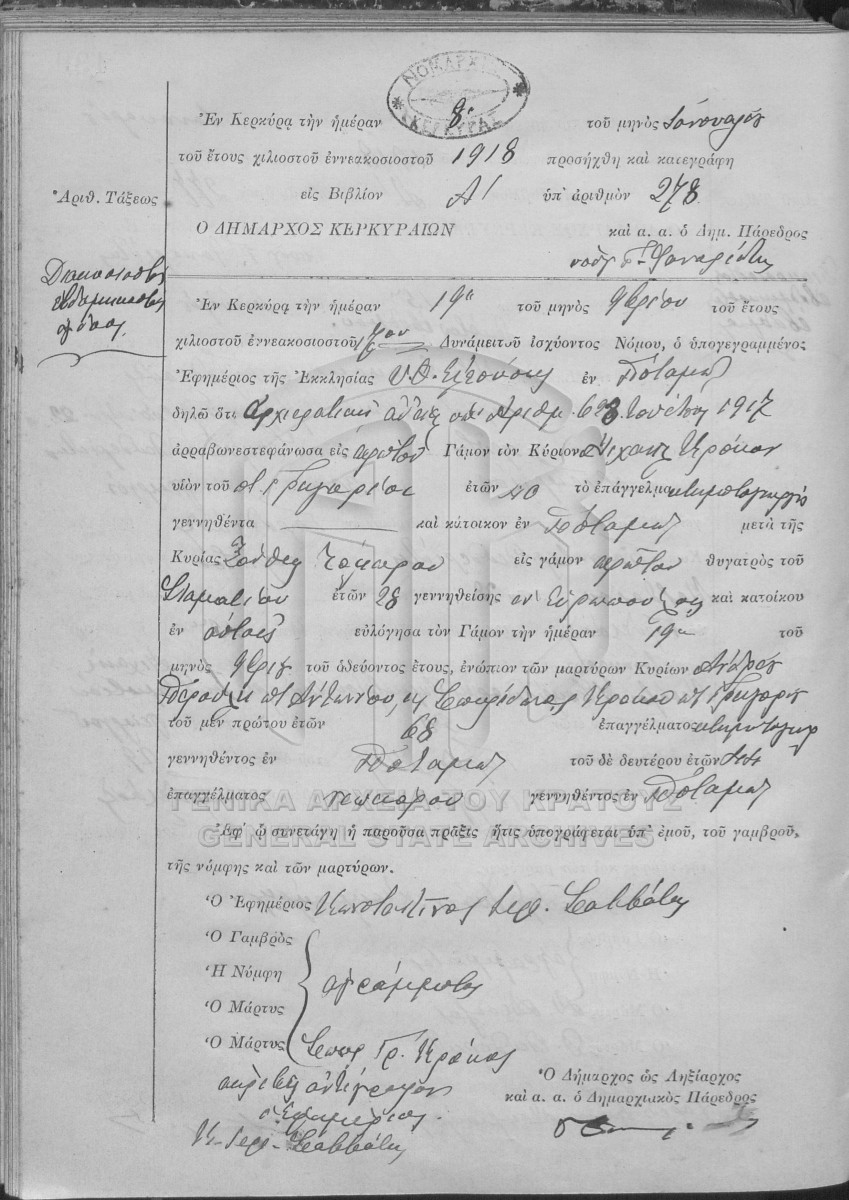 ΝΟΜΑΡΧΙΑ
ΚΕΡΚΥΡΑΣ
Ἐν Κερκύρᾳ τὴν ἡμέραν 8 τοῦ μηνὸς Ἰανουαρίου
τοῦ ἔτους χιλιοστοῦ ἐννεακοσιοστοῦ 1918 προσήχθη καὶ κατεγράφη
Ἀριθ. Τάξεως
εἰς Βιβλίον Α' ὑπ' ἀριθμὸν 278
Ο ΔΗΜΑΡΧΟΣ ΚΕΡΚΥΡΑΙΩΝ καὶ α. α. ὁ Δημ. Πάρεδρος
Διακοσιοστὴ
ἑβδομηκοστὴ
ὀγδόη.
Ἐν Κερκύρᾳ τὴν ἡμέραν 19η τοῦ μηνὸς 9βρίου τοῦ ἔτους
χιλιοστοῦ ἐννεακοσιοστοῦ 17ου Δυνάμει τοῦ ἰσχύοντος Νόμου, ὁ ὑπογεγραμμένος
Ἐφημέριος τῆς Ἐκκλησίας ἐν Ποταμῷ
δηλῶ ὅτι ἀρχιερατικῇ ἀδείᾳ ὑπ' ἀριθμ. 1917
ἀρραβωνεστεφάνωσα εἰς πρῶτον Γάμον τὸν Κύριον Μιχαὴλ Κρόκον
υἱὸν τοῦ Γρηγορίου ἐτῶν 40 τὸ ἐπάγγελμα κτηματογεωργὸν
γεννηθέντα καὶ κάτοικον ἐν Ποταμῷ μετὰ τῆς
Κυρίας εἰς γάμον πρῶτον θυγατρὸς τοῦ
Σταματίου ἐτῶν 28 γεννηθείσης καὶ κατοίκου
ἐν εὐλόγησα τὸν Γάμον τὴν ἡμέραν 19η τοῦ
μηνὸς 9βρίου τοῦ ὁδεύοντος ἔτους, ἐνώπιον τῶν μαρτύρων Κυρίων Ἀνδρέου
Ἀντωνίου, Σπυρίδωνος Κρόκου Γρηγορίου
τοῦ μὲν πρώτου ἐτῶν 68 ἐπαγγέλματος κτηματογεωργ
γεννηθέντος ἐν Ποταμῷ τοῦ δὲ δευτέρου ἐτῶν 44
ἐπαγγέλματος νεωκόρου γεννηθέντος ἐν Ποταμῷ
ΓΕΝΙΚΑ ΑΡΧΕΙΑ ΤΟΥ ΚΡΑΤΟΥΣ
Ἐφ' ᾧ συνετάγη ἡ παροῦσα πρᾶξις ἥτις ὑπογράφεται ὑπ' ἐμοῦ, τοῦ γαμβροῦ,
GENERAL STATE ARCHIVES
τῆς νύμφης καὶ τῶν μαρτύρων.
Ὁ Ἐφημέριος Κωνσταντῖνος Ιερ. Σαββάτης
Ὁ Γαμβρὸς
Ἡ Νύμφη ἀγράμματοι
Ὁ Μάρτυς
Ὁ Μάρτυς Σπυρ Γρ. Κρόκος
ἀκριβὲς ἀντίγραφον
ὁ Ἐφημέριος
Κ. Ιερ. Σαββάτης
Ὁ Δήμαρχος ὡς Ληξίαρχος
καὶ α. α. ὁ Δημαρχιακὸς Πάρεδρος